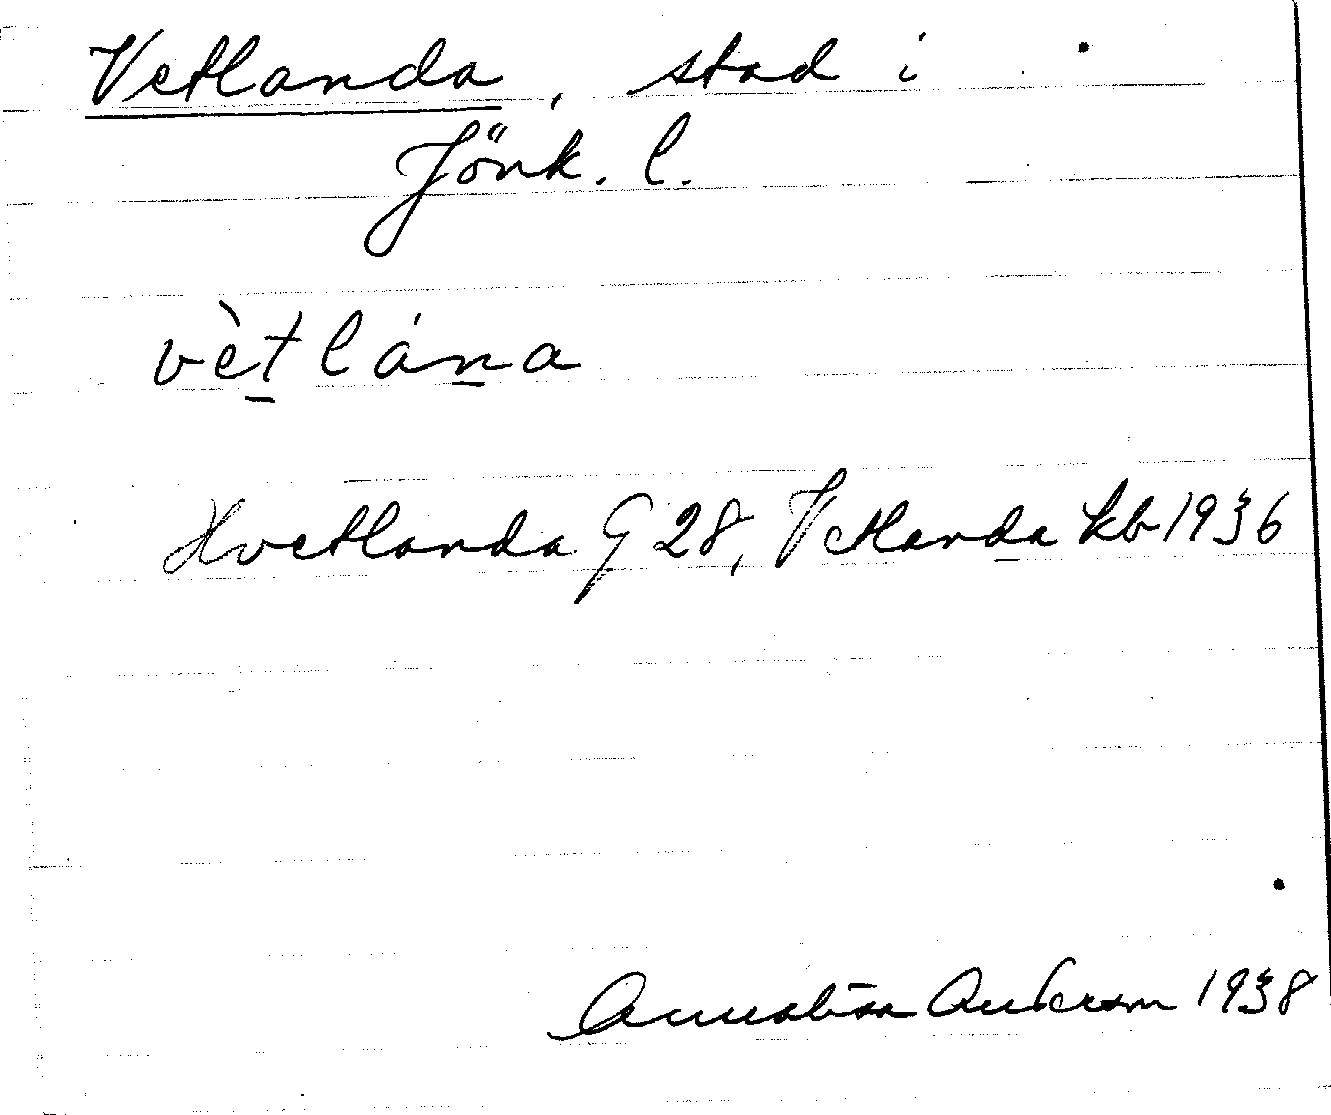 Vetlanda, stad i
Jönk. l.
vètlána
Hvetlanda G 28, Vetlanda kb 1936
Annalisa Anderson 1938